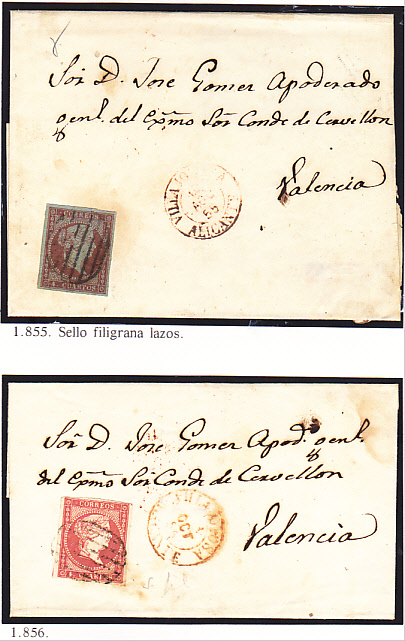 Sor. D. Jose Gomer Apoderado
genl. del Exmo Sor Conde de Cervellon
Valencia
VILLA
ALICANTE
CORREOS
4 CUARTOS
1.855. Sello filigrana lazos.
Sor. D. Jose Gomer Apod.o genl.
del Exmo Sor Conde de Cervellon
Valencia
OCT
CORREOS
1.856.